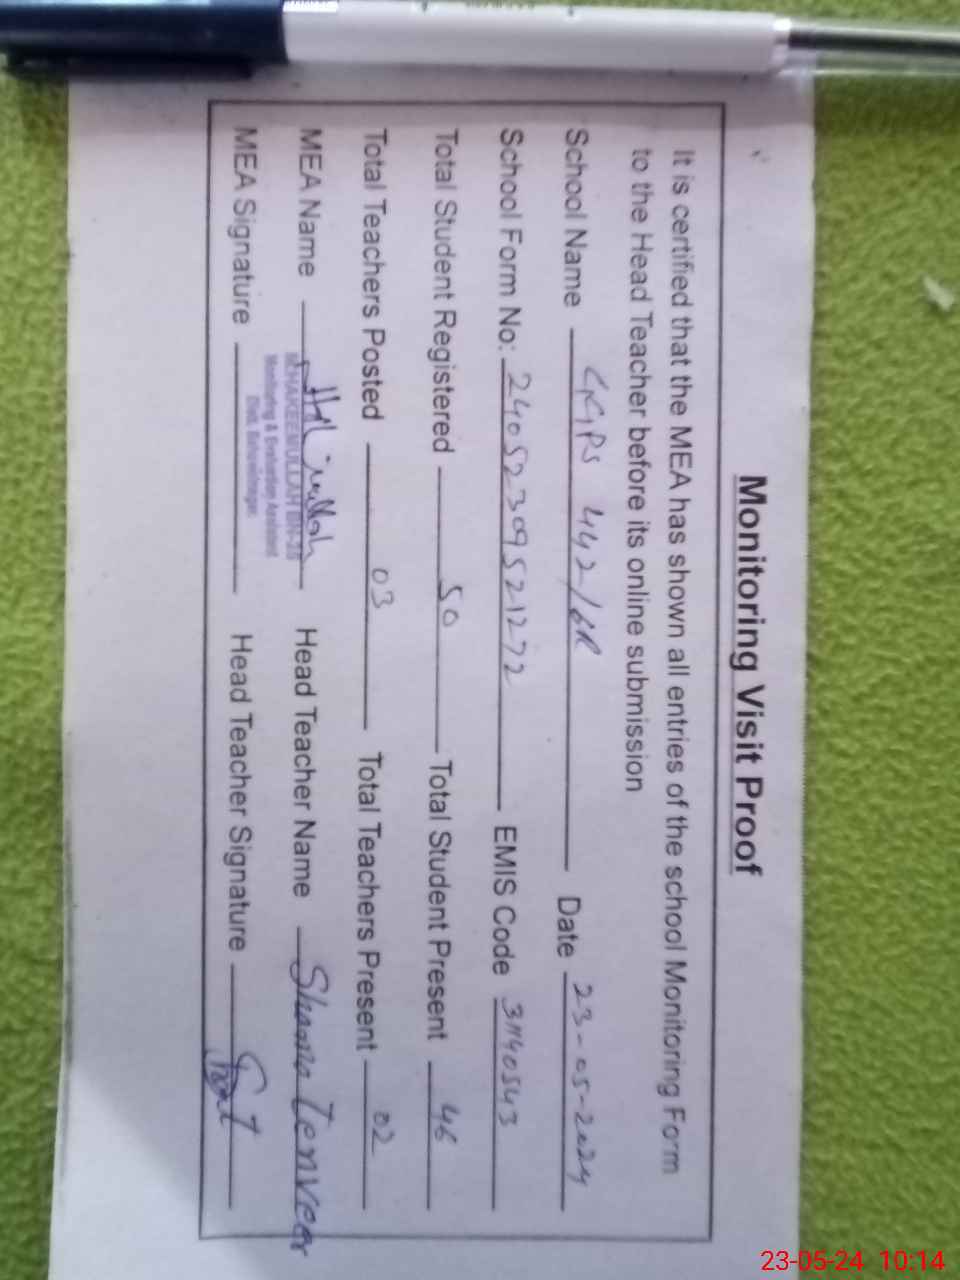 Monitoring Visit Proof
It is certified that the MEA has shown all entries of the school Monitoring Form
to the Head Teacher before its online submission
School Name GGPS 442/6R Date 23-05-2024
School Form No: 24052309521272 EMIS Code 31140543
Total Student Registered 50 Total Student Present 46
Total Teachers Posted 03 Total Teachers Present 02
MEA Name Head Teacher Name Shama Tanveer
MEA Signature Head Teacher Signature
Monitoring & Evaluation Assistant
Distt. Bahawalnagar
23-05-24 10:14